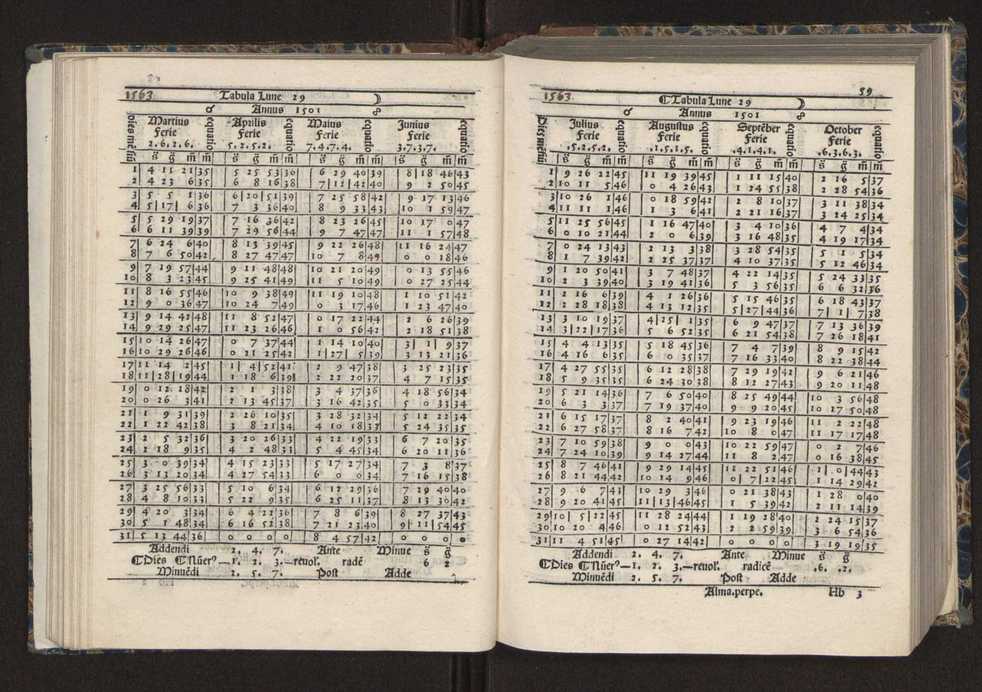 1563 Tabula Lune 29
Annus 1501
Martius Aprilis Maius Junius
Ferie Ferie Ferie Ferie
2.6.2.6. 5.2.5.2. 7.4.7.4. 3.7.3.7.
1 4 11 21 35 5 25 53 36 6 29 40 39 8 18 46 43
2 4 23 6 35 6 8 16 38 7 11 41 40 9 2 50 45
3 5 5 1 36 6 20 51 39 7 25 58 42 9 17 13 46
4 5 17 6 36 7 3 36 40 8 9 33 43 10 1 59 47
5 5 29 19 37 7 16 36 42 8 23 26 45 10 17 0 47
6 6 11 39 39 7 29 56 44 9 7 47 47 11 1 57 48
7 6 24 6 40 8 13 39 45 9 22 26 48 11 16 24 47
8 7 6 50 42 8 27 47 47 10 7 8 49 0 0 18 46
9 7 19 57 44 9 11 48 48 10 21 20 49 0 13 55 46
10 8 3 23 45 9 25 41 49 11 5 10 49 0 27 25 44
11 8 16 55 46 10 9 38 49 11 19 10 48 1 10 51 42
12 9 0 36 47 10 24 7 49 0 3 17 46 1 23 47 40
13 9 14 42 48 11 8 52 47 0 17 22 44 2 6 26 39
14 9 29 25 47 11 23 26 46 1 0 56 42 2 18 51 38
15 10 14 26 47 0 7 37 44 1 14 10 40 3 1 9 37
16 10 29 26 46 0 21 25 42 1 27 5 39 3 13 21 36
17 11 14 2 45 1 4 52 41 2 9 47 38 3 25 23 35
18 11 28 19 44 1 18 6 39 2 22 20 37 4 7 15 35
19 0 12 18 42 2 1 3 38 3 4 37 36 4 18 56 34
20 0 26 3 41 2 13 45 37 3 16 42 35 5 0 33 34
21 1 9 31 39 2 26 10 35 3 28 32 34 5 12 22 34
22 1 22 42 38 3 8 21 34 4 10 18 33 5 24 35 35
23 2 5 32 36 3 20 26 33 4 22 19 33 6 7 20 35
24 2 18 9 35 4 2 48 33 5 4 45 34 6 20 11 36
25 3 0 39 34 4 15 23 33 5 17 27 34 7 3 8 37
26 3 13 10 34 4 27 54 33 6 0 0 34 7 16 15 38
27 3 25 56 33 5 10 6 34 6 12 29 36 7 29 40 40
28 4 8 10 33 5 22 9 35 6 25 11 37 8 13 36 42
29 4 20 3 34 6 4 22 36 7 8 6 39 8 27 37 43
30 5 1 48 34 6 16 52 38 7 21 23 40 9 11 54 45
31 5 13 44 36 0 0 0 0 8 4 57 42 0 0 0 0
Addendi 2. 4. 7. Ante Minue
Dies Nũerꝰ—1. 2. 3.—reuol'. radẽ 6 2
Minuẽdi 2. 5. 7. Post Adde
59
1563 Tabula Lune 29
Annus 1501
Julius Augustus Septẽber October
Ferie Ferie Ferie Ferie
.5.2.5.2. .1.5.1.5. .4.1.4.1. .6.3.6.3.
1 9 26 22 45 11 19 39 45 1 11 15 40 2 16 5 37
2 10 11 5 46 0 4 26 43 1 24 55 38 2 28 54 36
3 10 26 1 46 0 18 59 42 2 8 10 37 3 11 38 34
4 11 11 1 46 1 3 6 41 2 21 16 37 3 24 25 34
5 11 25 56 45 1 16 47 40 3 4 10 36 4 7 4 34
6 0 10 21 44 2 0 6 39 3 16 48 35 4 19 17 34
7 0 24 13 43 2 13 3 38 3 28 54 35 5 1 5 34
8 1 7 39 42 2 25 37 37 4 10 37 35 5 12 46 34
9 1 20 50 41 3 7 48 37 4 22 14 35 5 24 33 35
10 2 3 39 40 3 19 41 36 5 3 56 35 6 6 32 36
11 2 16 6 39 4 1 26 36 5 15 46 35 6 18 43 37
12 2 28 18 38 4 13 12 35 5 27 44 36 7 1 7 38
13 3 10 19 37 4 25 1 35 6 9 47 37 7 13 36 39
14 3 22 17 36 5 6 52 35 6 21 54 38 7 26 18 41
15 4 4 13 35 5 18 45 36 7 4 7 39 8 9 15 42
16 4 16 6 35 6 0 35 37 7 16 33 40 8 22 38 44
17 4 27 55 35 6 12 28 38 7 29 19 42 9 6 21 46
18 5 9 35 35 6 24 30 38 8 12 27 43 9 20 11 48
19 5 21 14 36 7 6 50 40 8 25 49 44 10 3 56 48
20 6 3 3 37 7 19 37 40 9 9 20 45 10 17 50 48
21 6 15 17 37 8 2 40 41 9 23 19 46 11 2 22 48
22 6 27 58 37 8 16 7 42 10 8 0 47 11 17 17 48
23 7 10 59 38 9 0 0 43 10 22 59 47 0 2 7 46
24 7 24 10 39 9 14 27 44 11 8 2 47 0 16 38 45
25 8 7 46 41 9 29 14 45 11 22 51 46 1 0 44 43
26 8 21 44 42 10 14 9 46 0 7 12 45 1 14 29 42
27 9 6 7 43 10 29 3 46 0 21 38 43 1 28 0 40
28 9 20 41 45 11 13 46 45 1 5 39 42 2 11 14 39
29 10 5 22 45 11 28 24 44 1 19 28 40 2 24 15 37
30 10 20 4 46 0 12 52 43 2 2 59 39 3 6 54 36
31 11 4 51 45 0 27 14 42 0 0 0 0 3 19 19 35
Addendi 2. 4. 7. Ante Minue
Dies Nũerꝰ—1. 2. 3.—reuol'. radicẽ .6. .2.
Minuẽdi 2. 5. 7. Post Adde
Alma.perpe. Hb 3